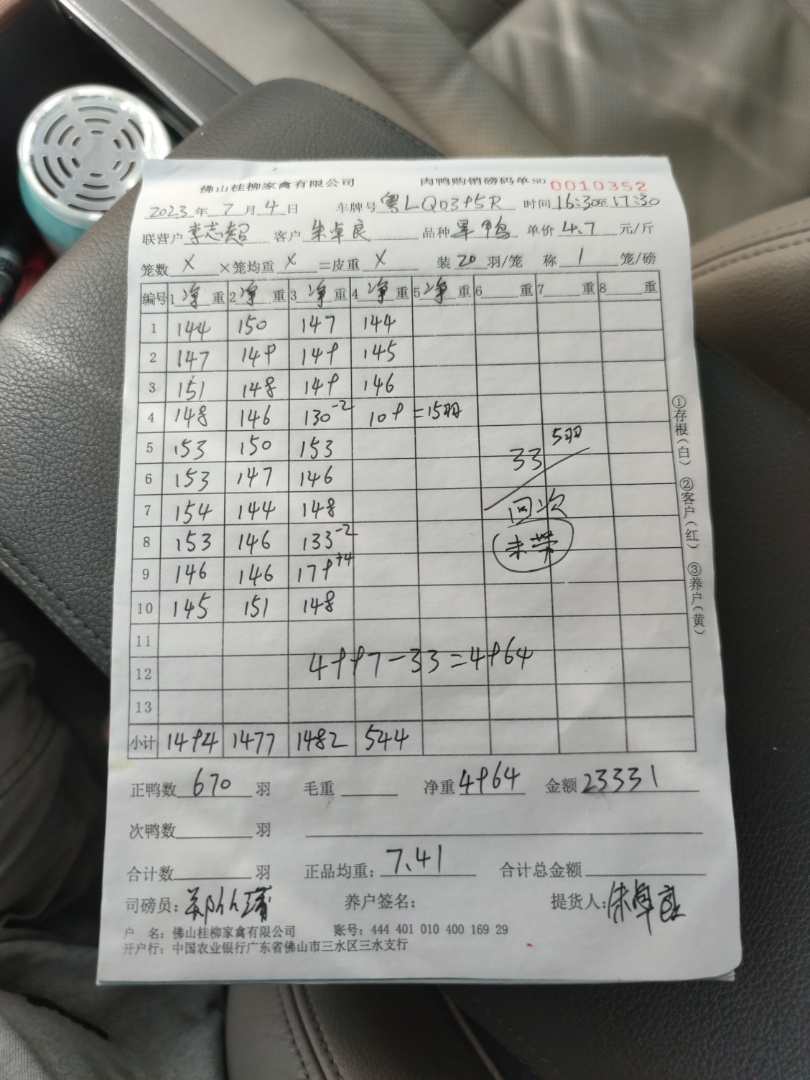 佛山桂柳家禽有限公司 肉鸭购销磅码单 NO 0010352
2023年7月4日 车牌号 粤LQ0395R 时间16:30至17:30
联营户 李志超 客户 朱卓良 品种 旱鸭 单价 4.7 元/斤
笼数 X ×笼均重 X =皮重 X 装 20 羽/笼 称 1 笼/磅
编号 1净重 2净重 3净重 4净重 5净重 6 重 7 重 8 重
1 144 150 147 144
2 147 149 149 145
3 151 148 149 146
4 148 146 130-2 109=15羽
5 153 150 153
6 153 147 146 33/5羽
7 154 144 148
8 153 146 133-2
9 146 146 179+4
10 145 151 148
11
12 4997-33=4964
13
小计 1494 1477 1482 544
正鸭数 670 羽 毛重 净重 4964 金额 23331
次鸭数 羽
合计数 羽 正品均重: 7.41 合计总金额
司磅员: 养户签名: 提货人: 朱卓良
户 名: 佛山桂柳家禽有限公司 账号: 444 401 010 400 169 29
开户行: 中国农业银行广东省佛山市三水区三水支行
①存根(白) ②客户(红) ③养户(黄)